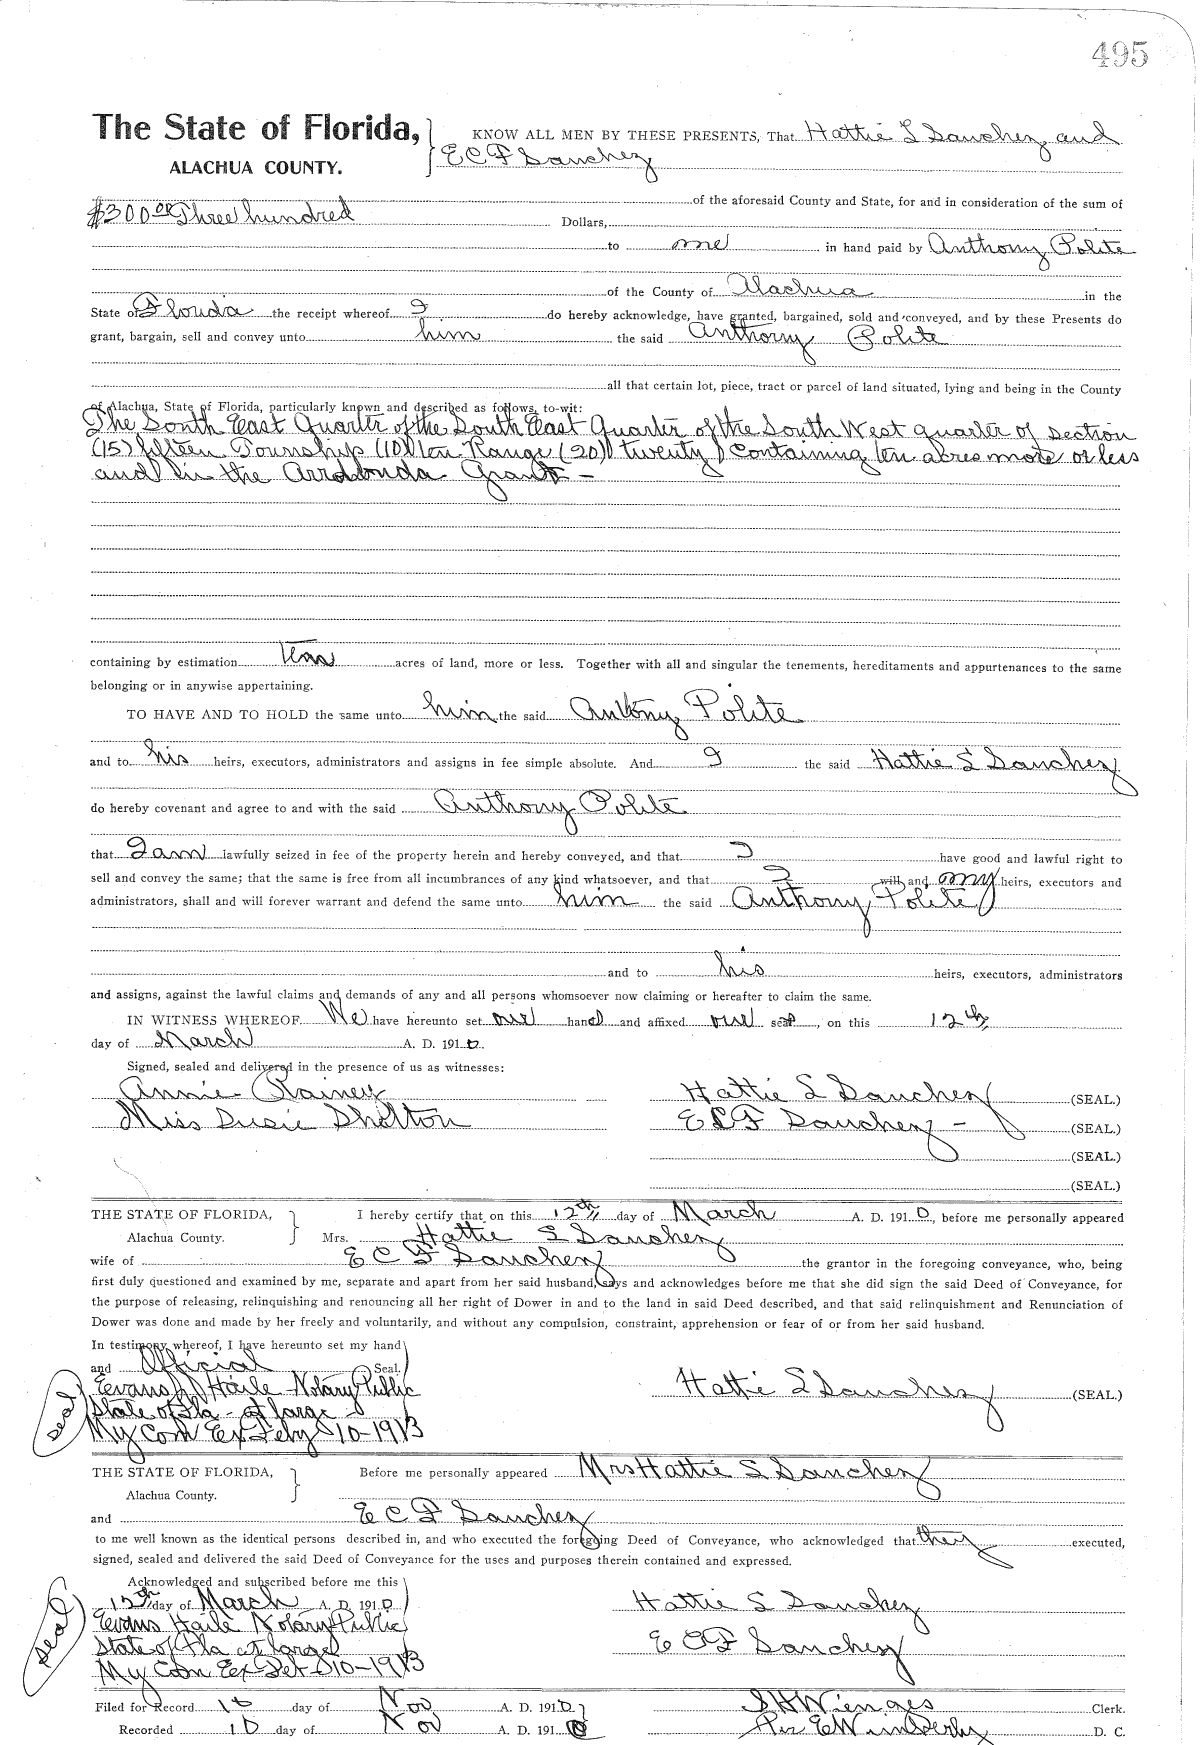 495
The State of Florida, KNOW ALL MEN BY THESE PRESENTS, That Hattie S Sanchez and
ALACHUA COUNTY. E C F Sanchez
of the aforesaid County and State, for and in consideration of the sum of
$300 00 Three hundred Dollars,
to me in hand paid by Anthony Polite
of the County of Alachua in the
State of Florida the receipt whereof I do hereby acknowledge, have granted, bargained, sold and conveyed, and by these Presents do
grant, bargain, sell and convey unto him the said Anthony Polite
all that certain lot, piece, tract or parcel of land situated, lying and being in the County
of Alachua, State of Florida, particularly known and described as follows, to-wit:
The South East Quarter of the South East Quarter of the South West quarter of section
(15) fifteen Township (10) ten Range (20) twenty) containing ten acres more or less
and in the Arrodonda Grant -
containing by estimation Ten acres of land, more or less. Together with all and singular the tenements, hereditaments and appurtenances to the same
belonging or in anywise appertaining.
TO HAVE AND TO HOLD the same unto him the said Antony Polite
and to his heirs, executors, administrators and assigns in fee simple absolute. And I the said Hattie S Sanchez
do hereby covenant and agree to and with the said Anthony Polite
that I am lawfully seized in fee of the property herein and hereby conveyed, and that I have good and lawful right to
sell and convey the same; that the same is free from all incumbrances of any kind whatsoever, and that I will and my heirs, executors and
administrators, shall and will forever warrant and defend the same unto him the said Anthony Polite
and to his heirs, executors, administrators
and assigns, against the lawful claims and demands of any and all persons whomsoever now claiming or hereafter to claim the same.
IN WITNESS WHEREOF We have hereunto set our hand and affixed our seal, on this 12th
day of March A. D. 1910.
Signed, sealed and delivered in the presence of us as witnesses:
Annie Rainey Hattie S Sanchez (SEAL.)
Miss Susie Shelton E C F Sanchez - (SEAL.)
(SEAL.)
(SEAL.)
THE STATE OF FLORIDA, I hereby certify that on this 12th day of March A. D. 1910, before me personally appeared
Alachua County. Mrs. Hattie S Sanchez
wife of E C F Sanchez the grantor in the foregoing conveyance, who, being
first duly questioned and examined by me, separate and apart from her said husband, says and acknowledges before me that she did sign the said Deed of Conveyance, for
the purpose of releasing, relinquishing and renouncing all her right of Dower in and to the land in said Deed described, and that said relinquishment and Renunciation of
Dower was done and made by her freely and voluntarily, and without any compulsion, constraint, apprehension or fear of or from her said husband.
In testimony whereof, I have hereunto set my hand
and Official Seal.
Evans Haile Notary Public Hattie S Sanchez (SEAL.)
seal State of Fla - at large -
My Com Ex Feby 10-1913
THE STATE OF FLORIDA, Before me personally appeared Mrs Hattie S Sanchez
Alachua County.
and E C F Sanchez
to me well known as the identical persons described in, and who executed the foregoing Deed of Conveyance, who acknowledged that they executed,
signed, sealed and delivered the said Deed of Conveyance for the uses and purposes therein contained and expressed.
Acknowledged and subscribed before me this
12th day of March A. D. 1910 Hattie S Sanchez
Evans Haile Notary Public
seal State of Fla at large E C F Sanchez
My Com Ex 10-1913
Filed for Record 10 day of Nov A. D. 1910 S H Wienges Clerk.
Recorded 10 day of Nov A. D. 1910 Per E Wimberly D. C.